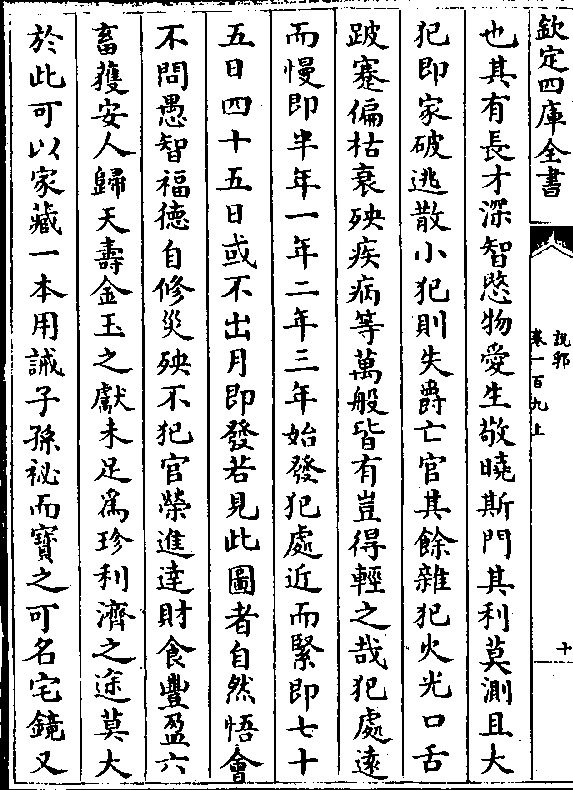 欽定四庫全書
說郛
卷一百九上
十
也其有長才深智慜物愛生敬曉斯門其利莫測且大
犯即家破逃散小犯則失爵亡官其餘雜犯火光口舌
跛蹇偏枯衰殃疾病等萬般皆有豈得輕之哉犯處遠
而慢即半年一年二年三年始發犯處近而緊即七十
五日四十五日或不出月即發若見此圖者自然悟會
不問愚智福德自修災殃不犯官榮進達財食豐盈六
畜獲安人歸天壽金玉之獻未足為珍利濟之途莫大
於此可以家藏一本用誡子孫祕而寶之可名宅鏡又